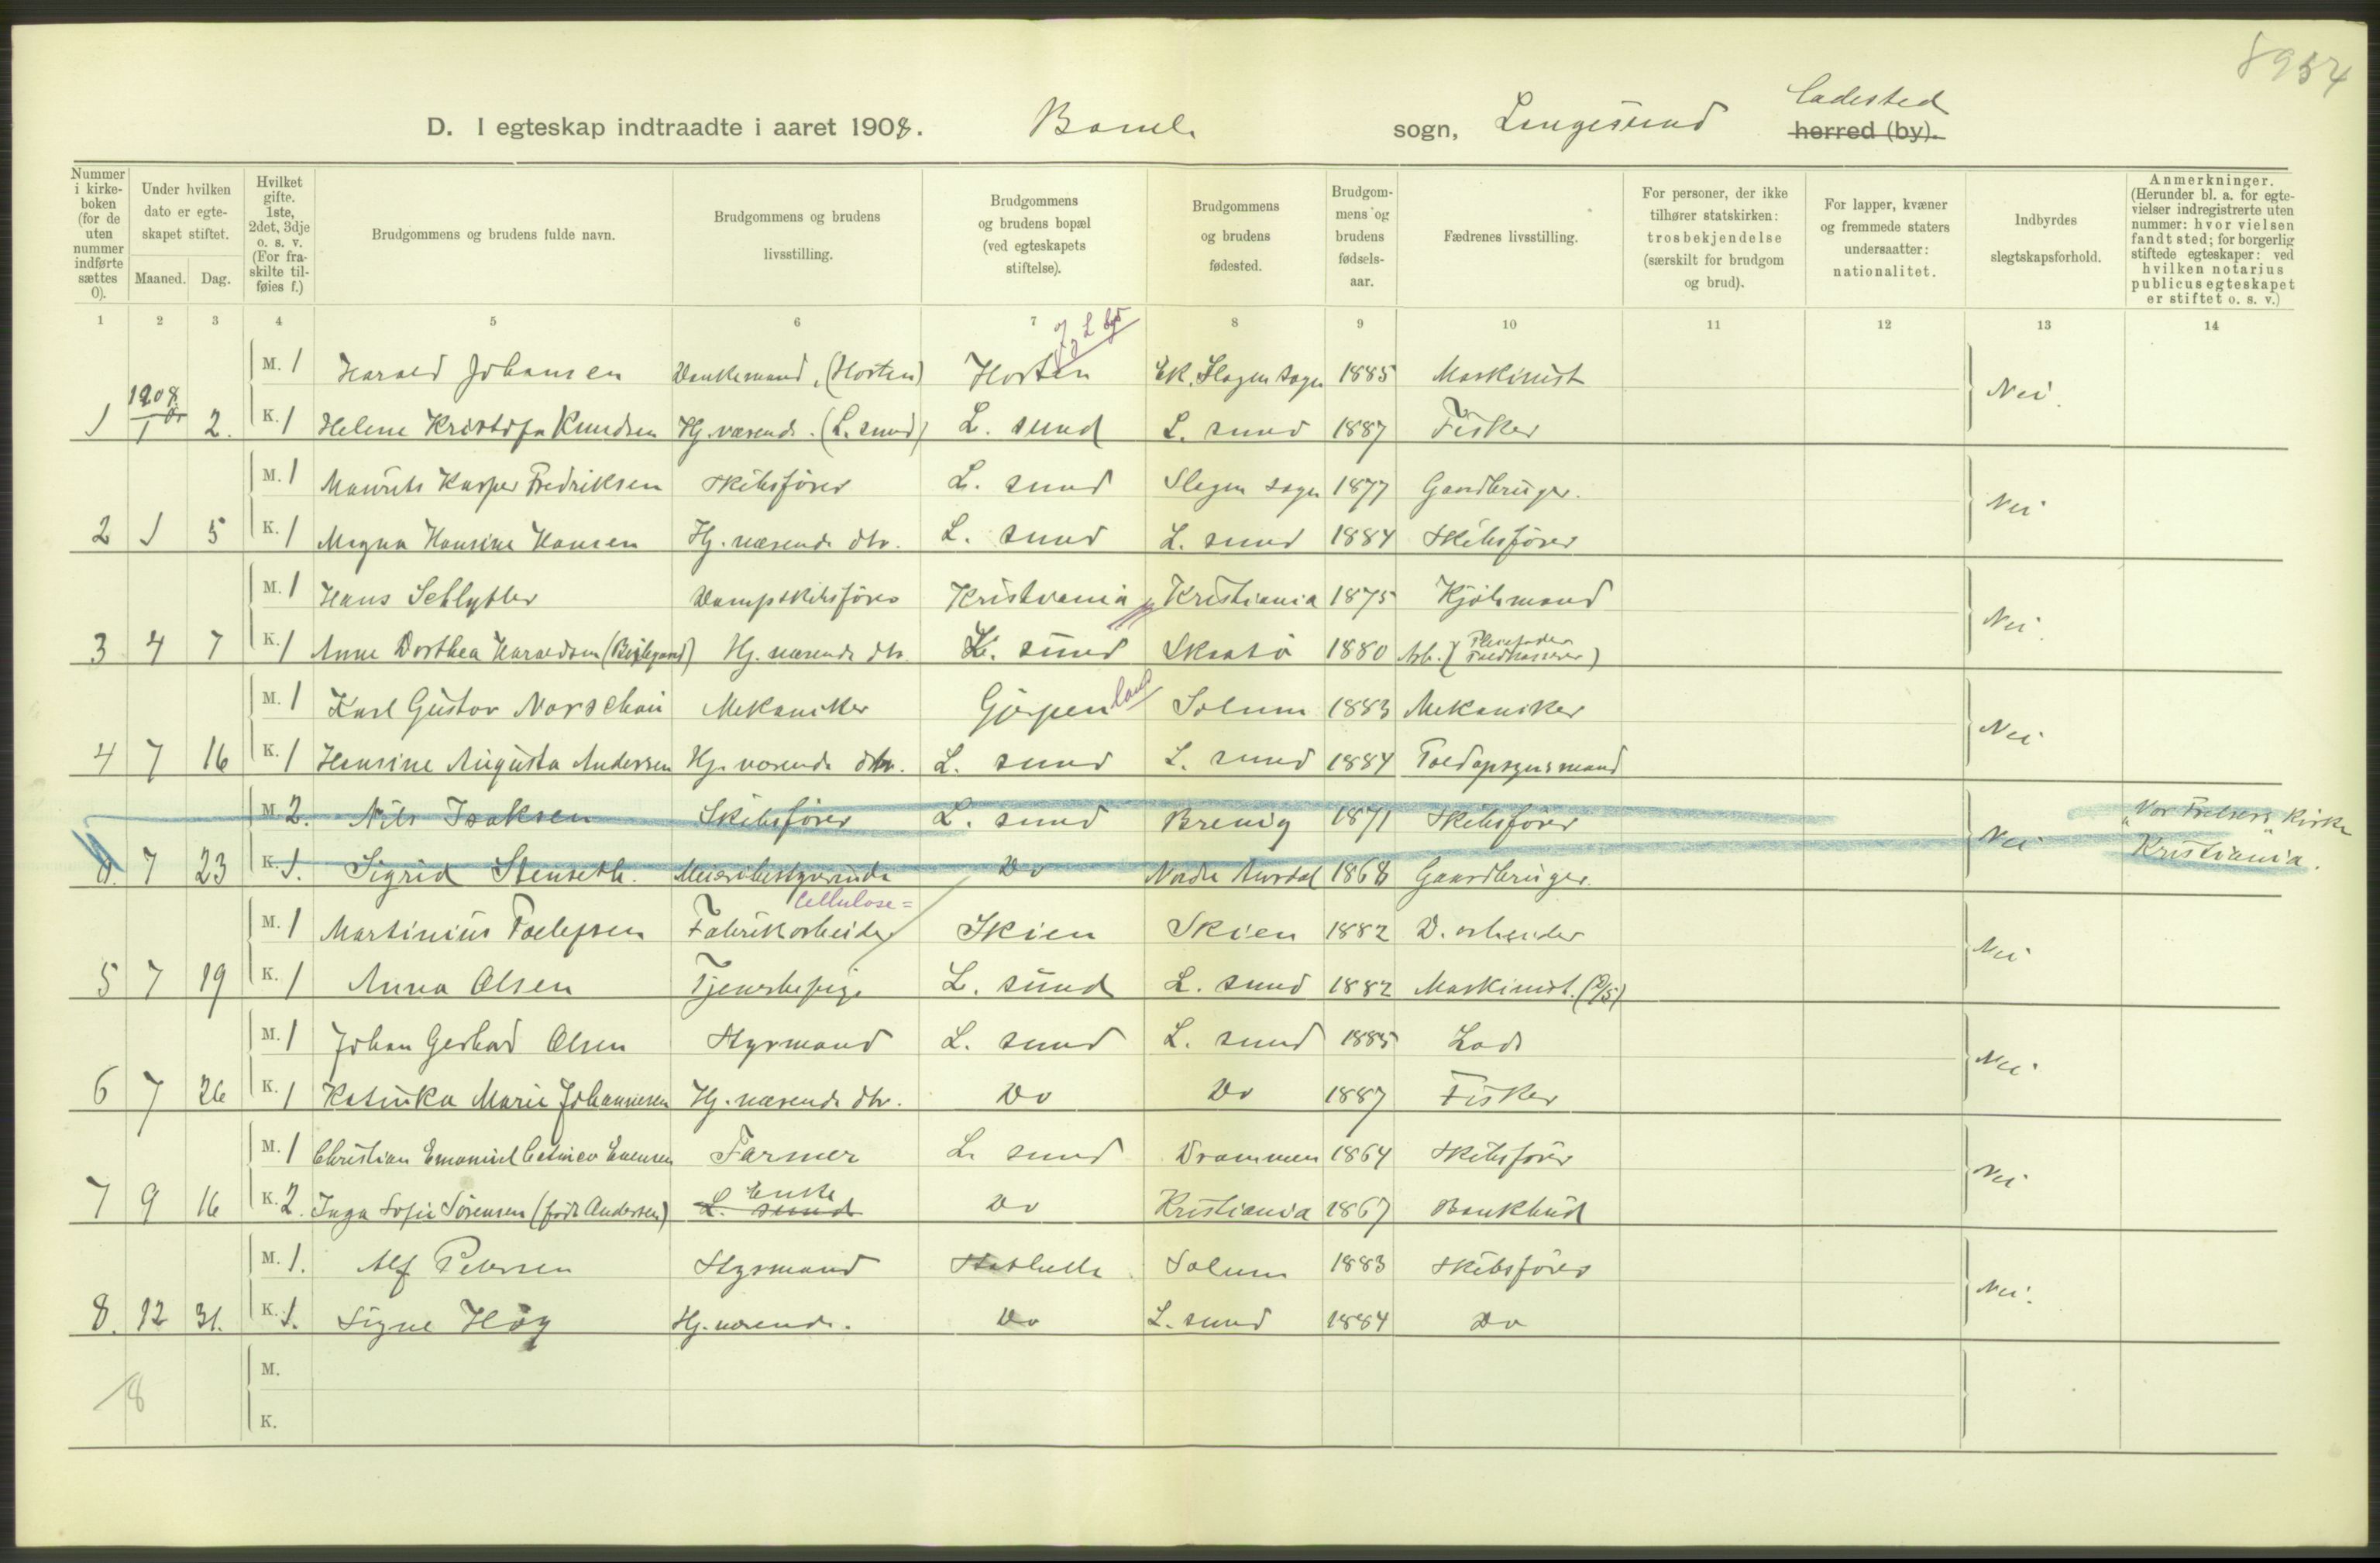 8954
D. I egteskap indtraadte i aaret 1908. Bamle sogn, Langesund Ladested herred (by).
Nummer i kirkeboken (for de uten nummer indførte sættes 0).
Under hvilken dato er egteskapet stiftet.
Maaned. Dag.
Hvilket gifte. 1ste, 2det, 3dje o. s. v. (For fraskilte tilføies f.)
Brudgommens og brudens fulde navn.
Brudgommens og brudens livsstilling.
Brudgommens og brudens bopæl (ved egteskapets stiftelse).
Brudgommens og brudens fødested.
Brudgommens og brudens fødselsaar.
Fædrenes livsstilling.
For personer, der ikke tilhører statskirken: trosbekjendelse (særskilt for brudgom og brud).
For lapper, kvæner og fremmede staters undersaatter: nationalitet.
Indbyrdes slegtskapsforhold.
Anmerkninger. (Herunder bl. a. for egtevielser indregistrerte uten nummer: hvor vielsen fandt sted; for borgerlig stiftede egteskaper: ved hvilken notarius publicus egteskapet er stiftet o. s. v.)
1 2 3 4 5 6 7 8 9 10 11 12 13 14
M. 1 Harald Johansen Dankemand, (Horten) Horten Slagen sogn 1885 Maskinist Nei.
1 1908 1 2. K. 1 Helene Kristofa Knudsen Hj. værende. (L. sund) L. sund L. sund 1887 Fisker
M. 1 Mauritz Kasper Fredriksen Skibsfører L. sund Slagen sogn 1877 Gaardbruger. Nei
2 1 5 K. 1 Magna Hansine Hansen Hj. værende dtr. L. sund L. sund 1884 Skibsfører
M. 1 Hans Schlytter Dampskibsfører Kristiania Kristiania 1875 Kjøbmand Nei.
3 4 7 K. 1 Anne Dorthea Haraldsen Hj. værende dtr. L. sund Skaatø 1880 Arb.
M. 1 Karl Gustav Norschau Mekaniker Gjerpen land Solum 1883 Mekaniker Nei
4 7 16 K. 1 Hansine Augusta Andersen Hj. værende dtr. L. sund L. sund 1884 Toldopsynsmand
M. 2. Nils Isaksen Skibsfører L. sund Brevig 1871 Skibsfører Nei "Vor Frelsers" Kirke
7 23 K. 1. Sigrid Stenseth. Meieribestyrerinde Do Nordre Aurdal 1868 Gaardbruger. Kristiania.
Cellulose=
M. 1 Martinius Tollefsen Fabrikarbeider Skien Skien 1882 D. arbeider Nei
5 7 19 K. 1 Anna Olsen Tjenestepige L. sund L. sund 1882 Maskinist.
M. 1 Johan Gerhard Olsen Styrmand L. sund L. sund 1885 Lods Nei
6 7 26 K. 1 Katinka Marie Johannesen Hj. værende dtr. Do Do 1887 Fisker
M. 1 Christian Emanuel Evensen Farmer L. sund Drammen 1864 Skibsfører Nei
7 9 16 K. 2. Inga Sofie Sørensen (født Andersen) L. sund Enke Do Kristiania 1867 Bankbud
M. 1. Alf Petersen Styrmand Stathelle Solum 1883 Skibsfører Nei.
8. 12 31. K. 1. Signe Høg Hj. værende. Do L. sund 1884 Do
M.
8
K.